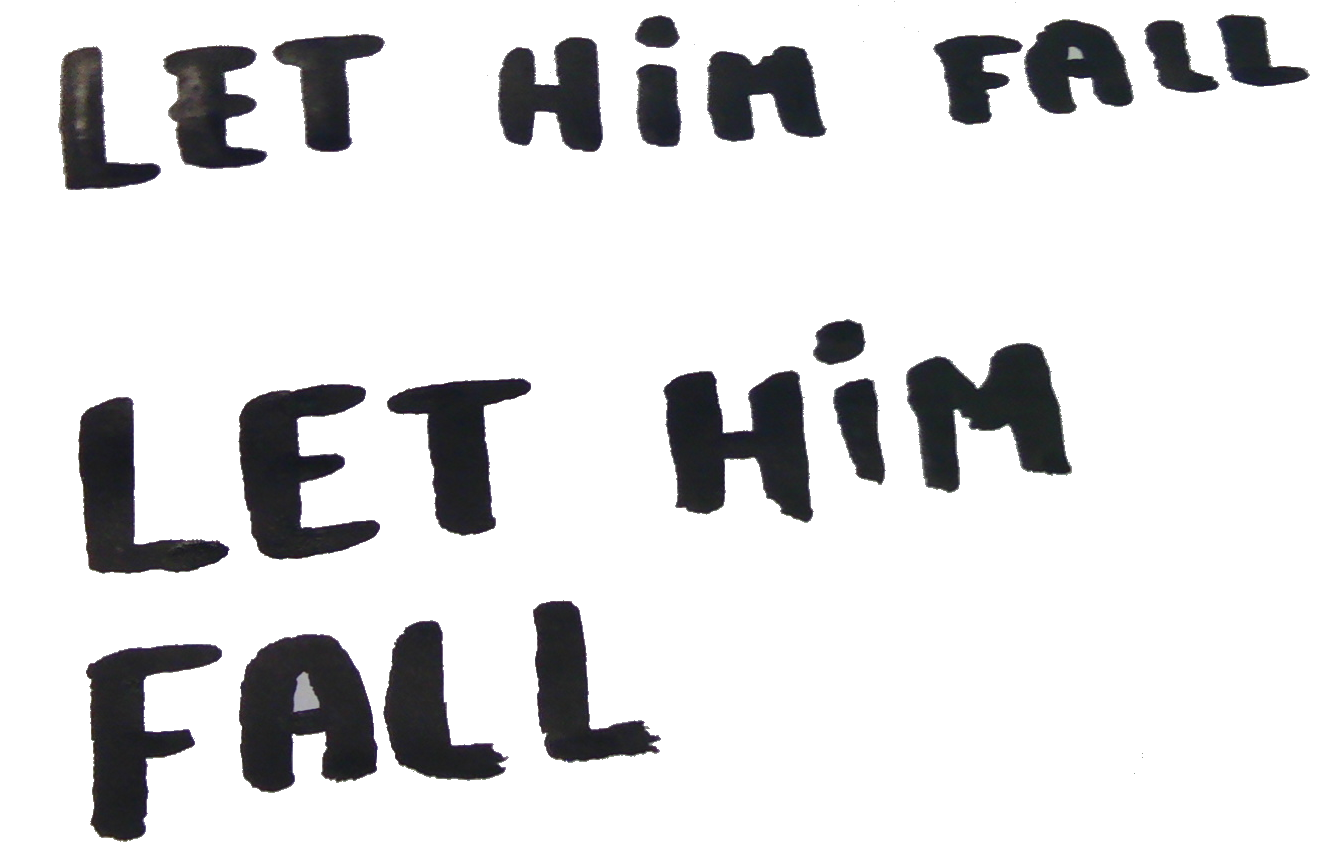 LET HiM FALL
LET HiM
FALL